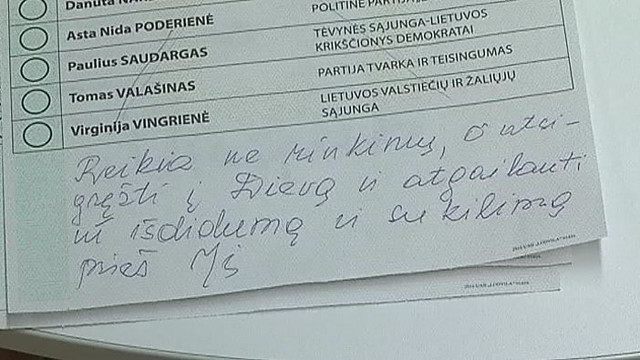 Danuta
POLITINĖ PARTIJA
Asta Nida PODERIENĖ
TĖVYNĖS SĄJUNGA-LIETUVOS
KRIKŠČIONYS DEMOKRATAI
Paulius SAUDARGAS
PARTIJA TVARKA IR TEISINGUMAS
Tomas VALAŠINAS
LIETUVOS VALSTIEČIŲ IR ŽALIŲJŲ
SĄJUNGA
Virginija VINGRIENĖ
Reikia ne rinkimų, o atsi-
gręžti į Dievą ir atgailauti
už išdidumą ir sukilimą
prieš Jį